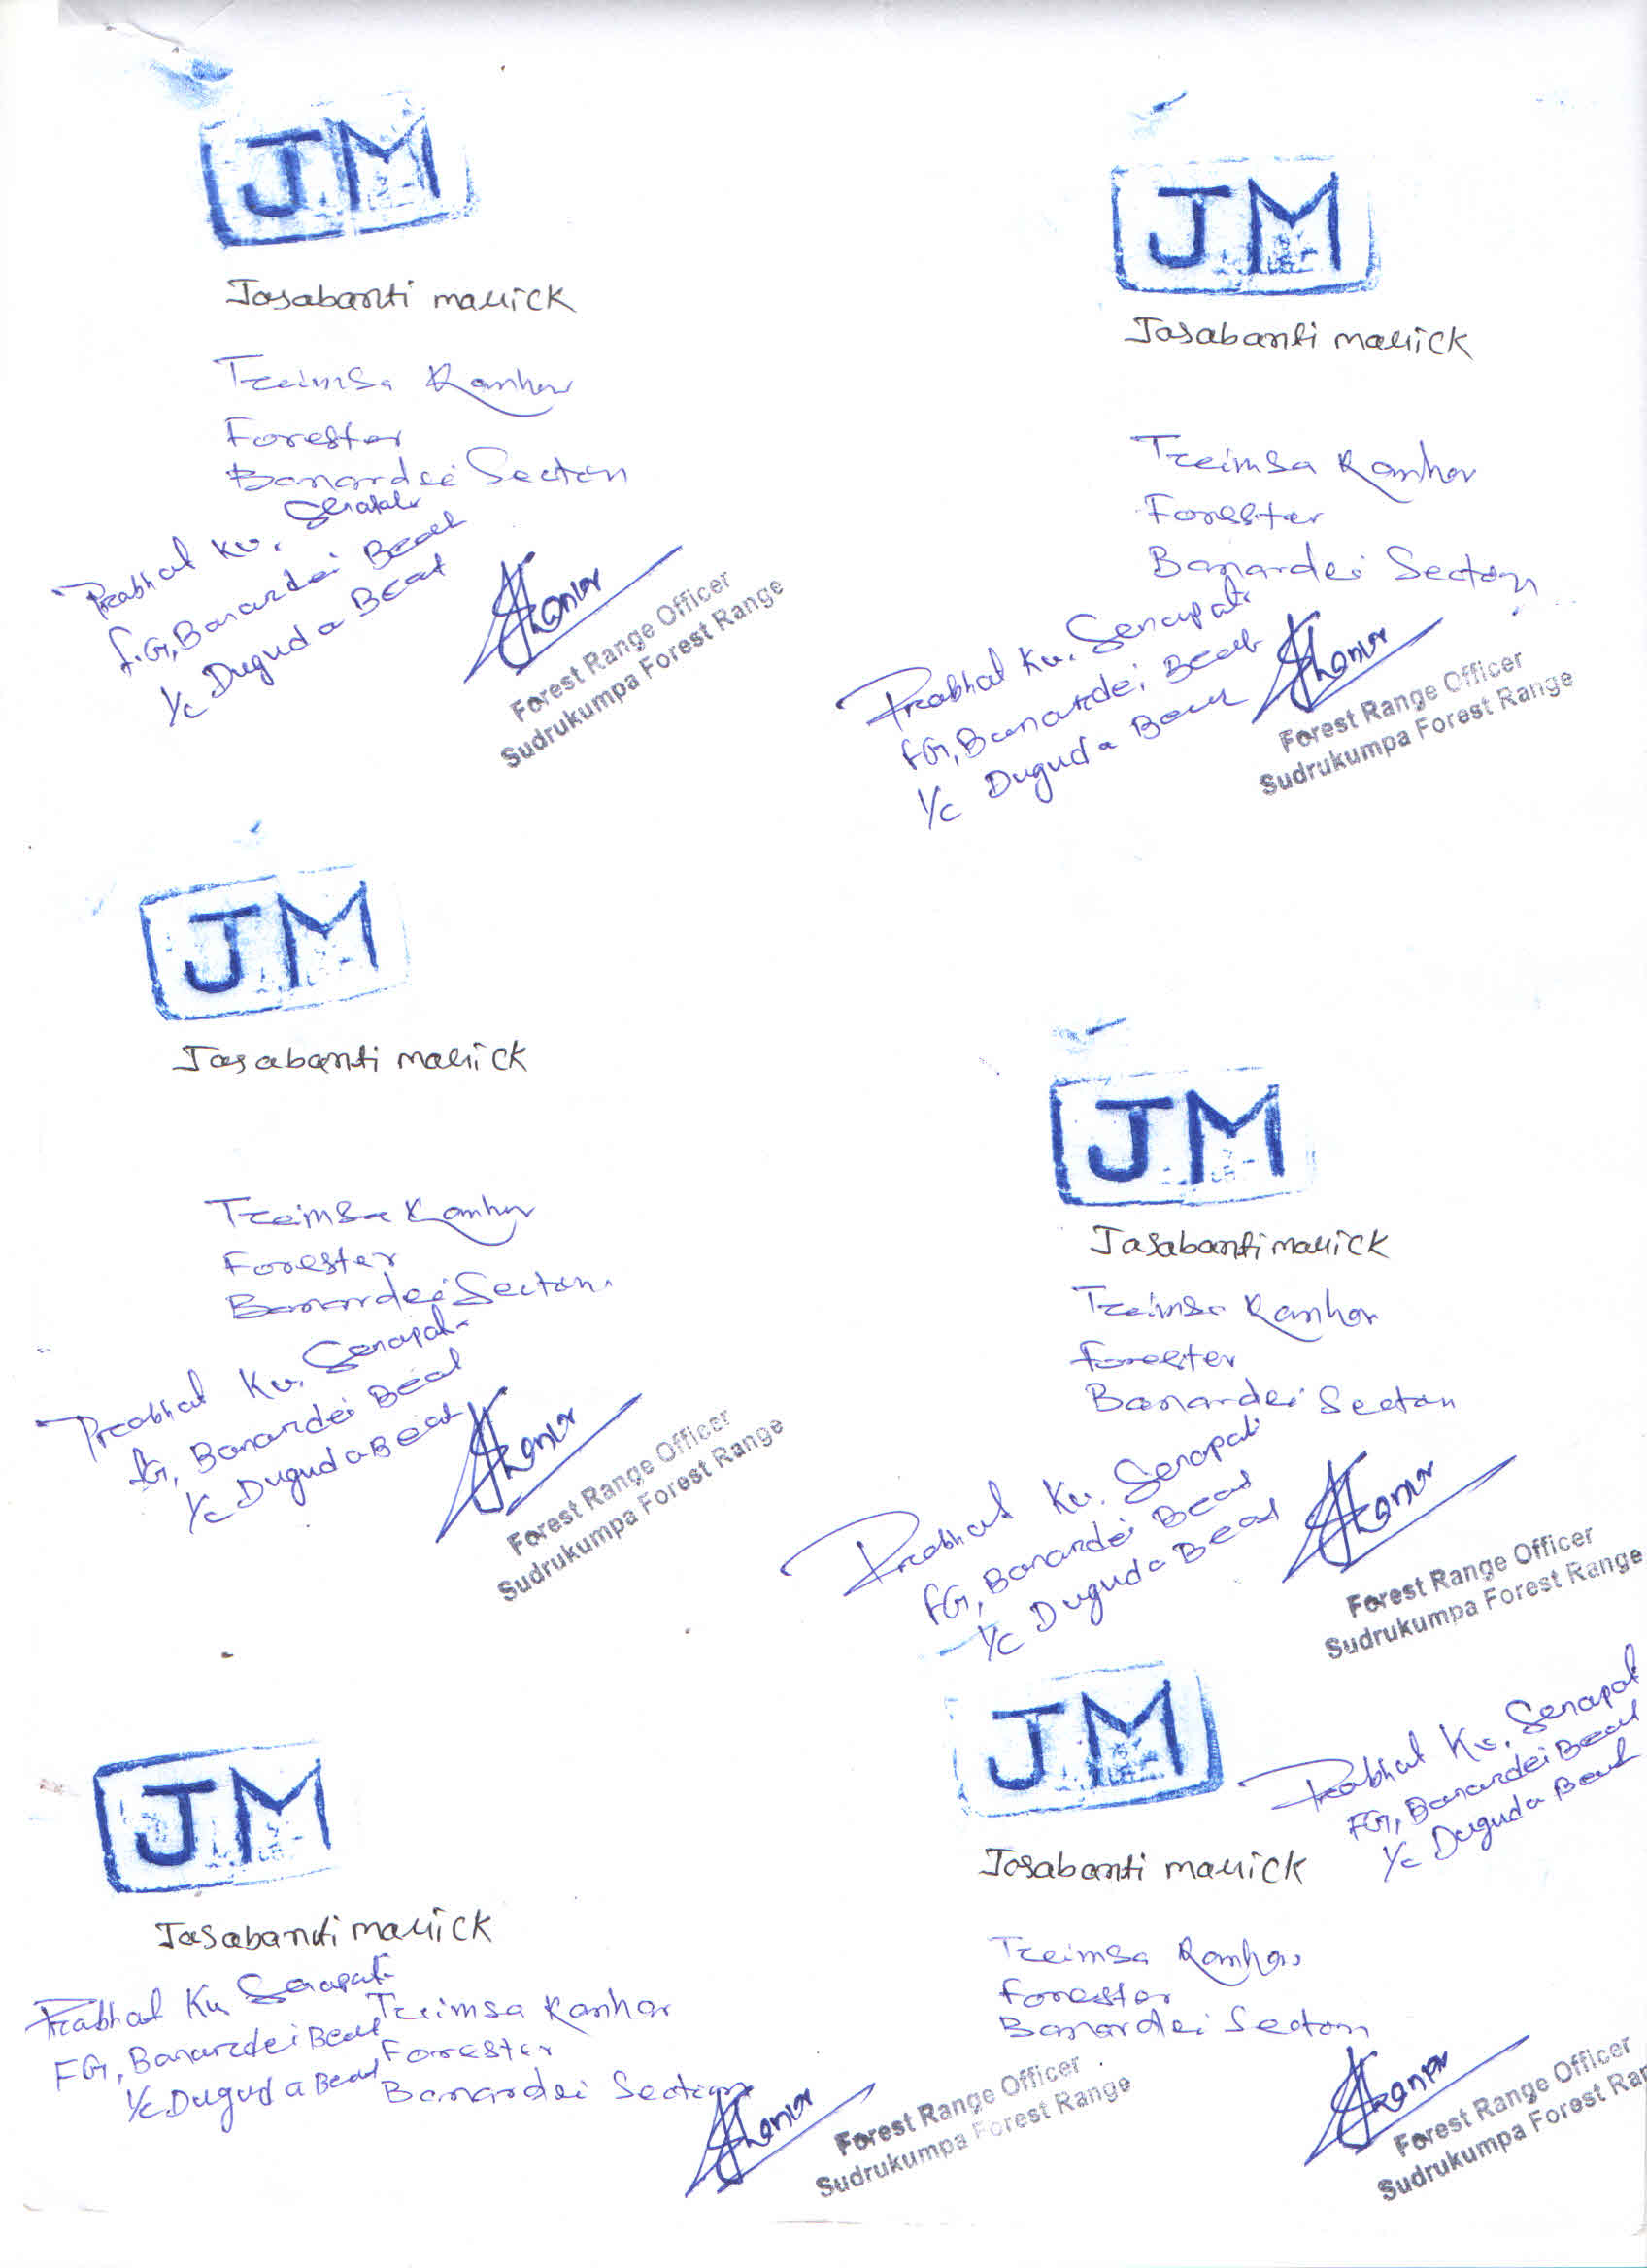 JM
Jasabanti mallick
Treimsa Kanhar
Forester
Banardei Section
Prabhat Ku. Senapati
F.G, Banardei Beat
I/c Duguda Beat
Forest Range Officer
Sudrukumpa Forest Range
JM
Jasabanti mallick
Treimsa Kanhar
Forester
Banardei Section
Prabhat Ku. Senapati
FG, Banardei Beat
I/c Duguda Beat
Forest Range Officer
Sudrukumpa Forest Range
JM
Jasabanti mallick
Treimsa Kanhar
Forester
Banardei Section
Prabhat Ku. Senapati
FG, Banardei Beat
I/c Duguda Beat
Forest Range Officer
Sudrukumpa Forest Range
JM
Jasabanti mallick
Treimsa Kanhar
Forester
Banardei Section
Prabhat Ku. Senapati
FG, Banardei Beat
I/c Duguda Beat
Forest Range Officer
Sudrukumpa Forest Range
JM
Jasabanti mallick
Prabhat Ku Senapati
FG, Banardei Beat
I/c Duguda Beat
Treimsa Kanhar
Forester
Banardei Section
Forest Range Officer
Sudrukumpa Forest Range
JM
Jasabanti mallick
Prabhat Ku. Senapati
FG, Banardei Beat
I/c Duguda Beat
Treimsa Kanhar
Forester
Banardei Section
Forest Range Officer
Sudrukumpa Forest Ran